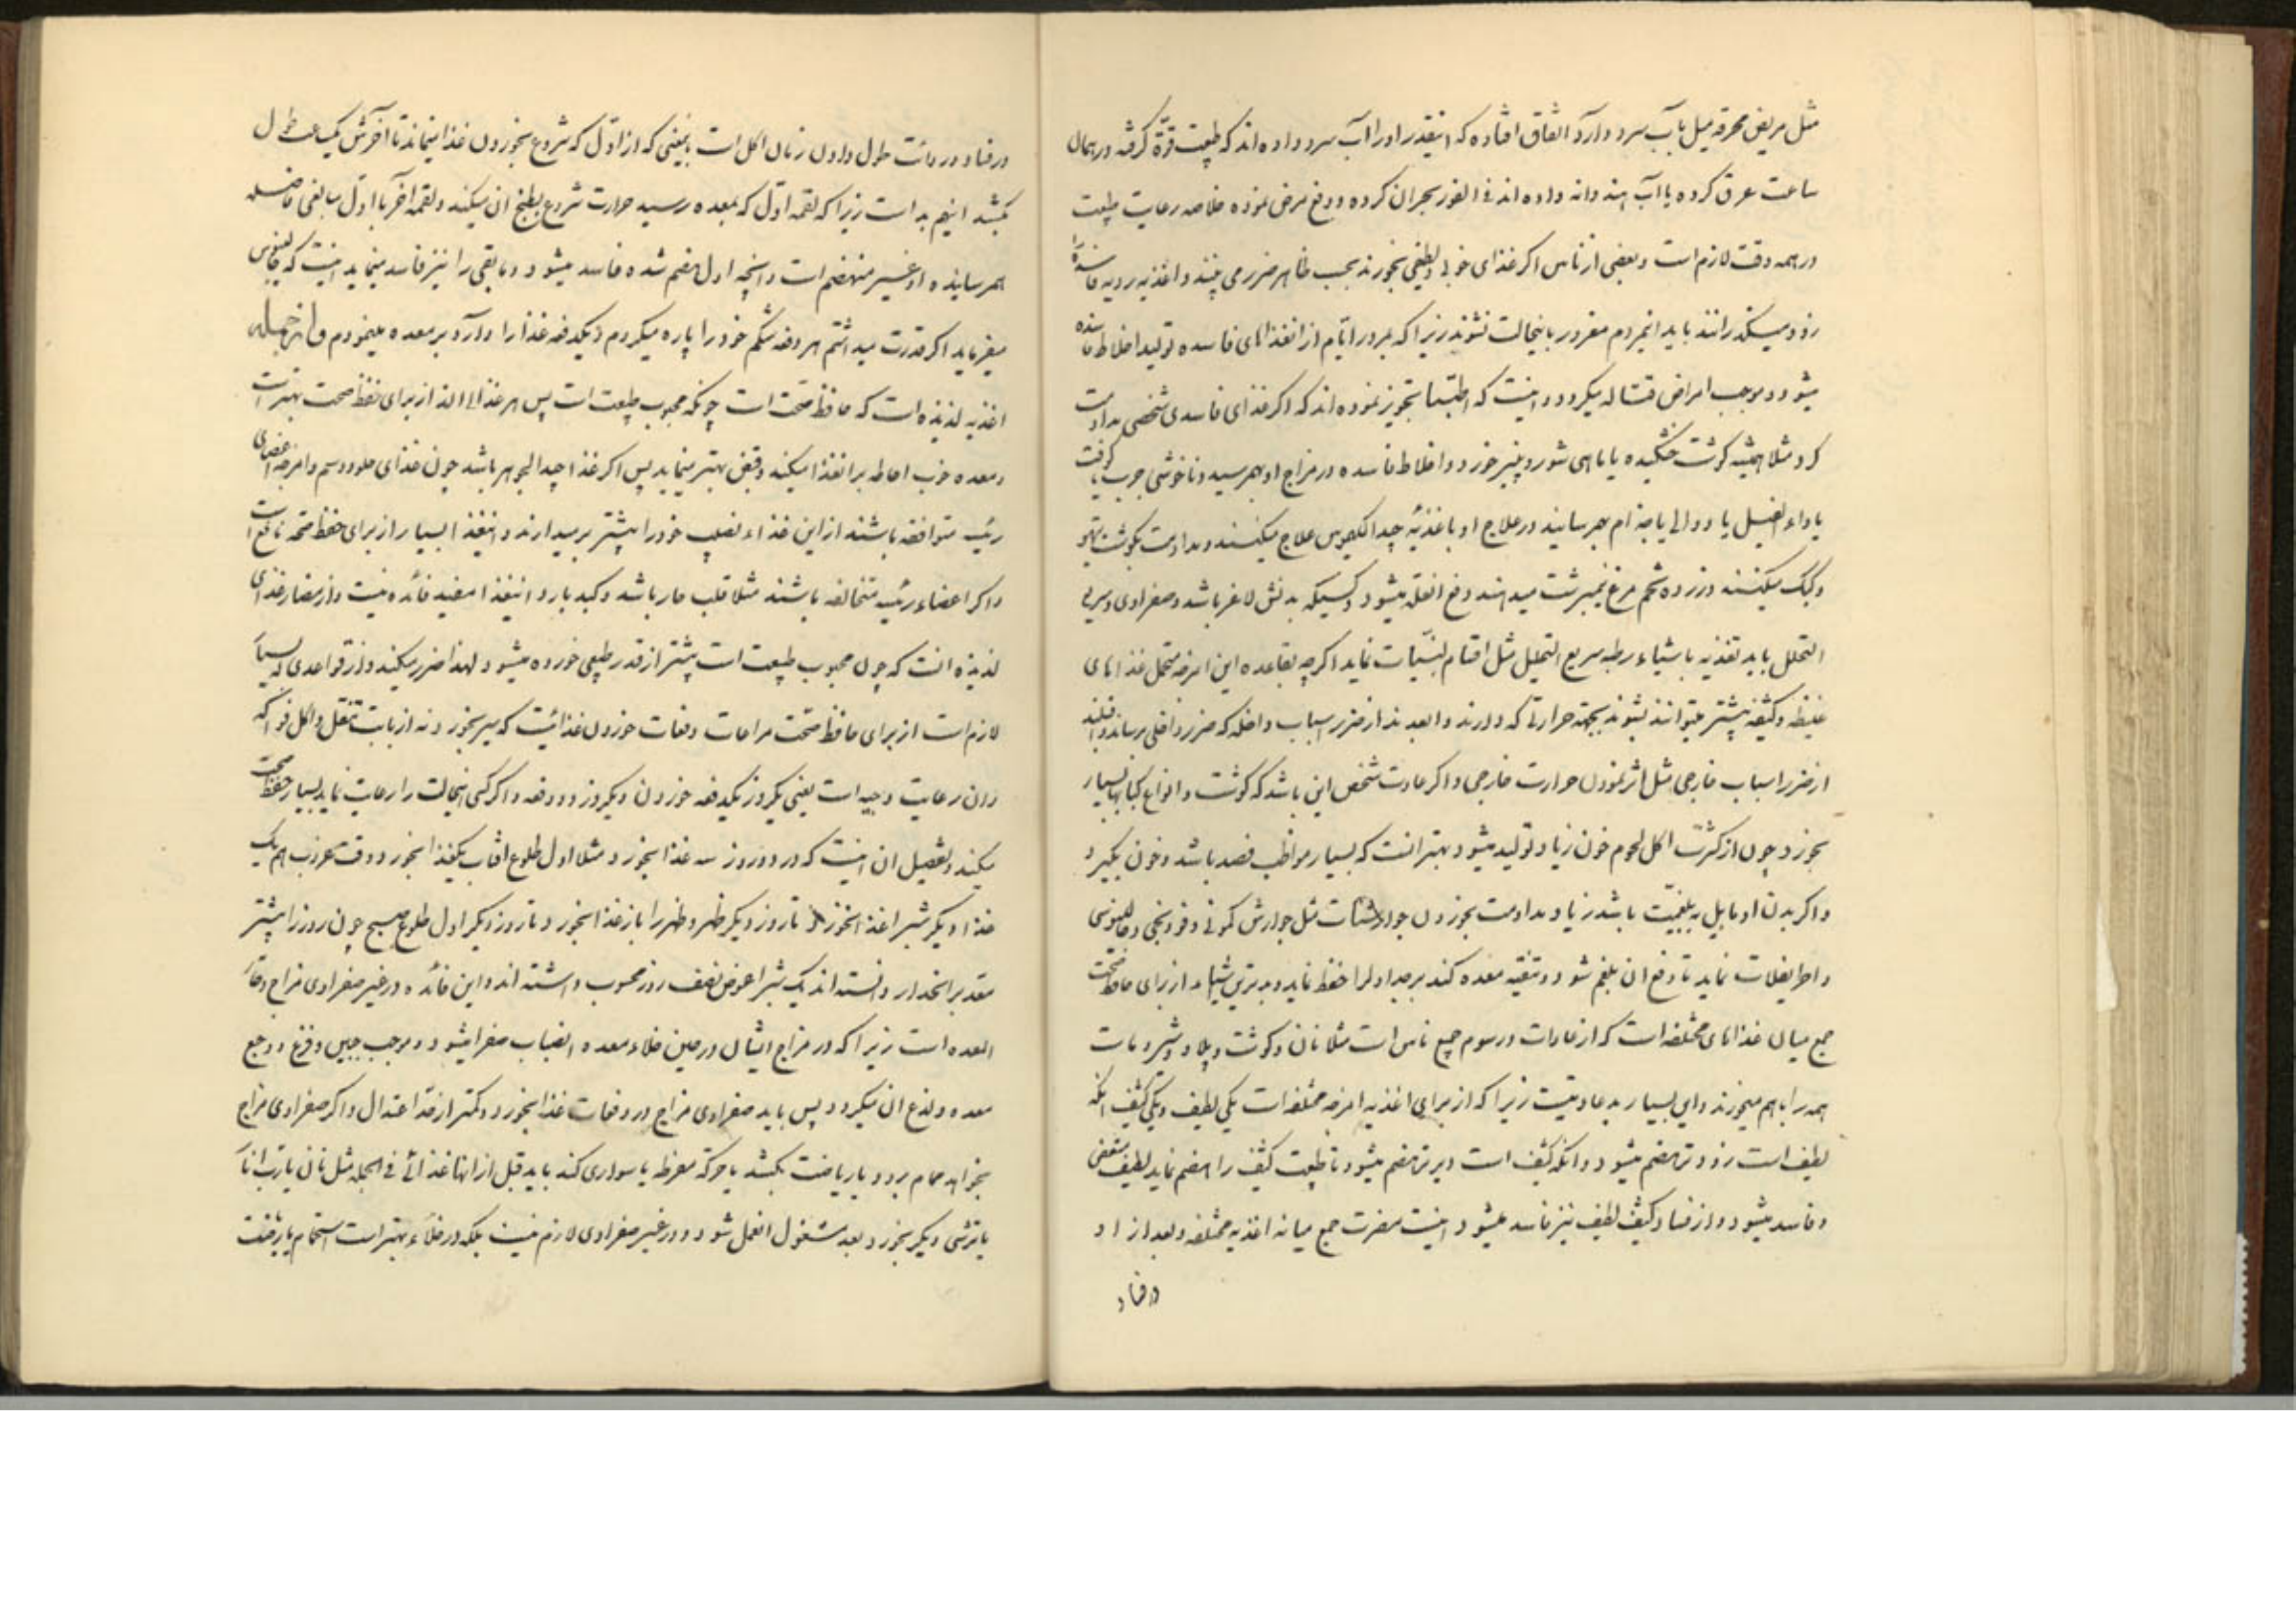 مثل مریض محرقه میل بآب سرد دارد اتفاق افتاده که اینقدر او را آب سرد داده‌اند که طبیعت قوّة کرفته در همال
ساعت عرق کرده یا آب هندوانه داده‌اند فی الفور بحران کرده و دفع مرض نموده خلاصه رعایت طبیعت
در همه وقت لازم است و بعضی از ناس اکر غذای خوب و لطیفی بخورند بحسب ظاهر ضرر می بینند و اغذیه ردیه فاسده را
زود میکذرانند باید اینمردم مغرور باینحالت نشوند زیرا که بمرور ایّام از انغذاهای فاسده تولید اخلاط فاسده
میشود و موجب امراض قتاله میکردد و اینست که اطبّا تجویز نموده‌اند که اکر غذای فاسدی شخصی مداومت
کرد مثلا همیشه کوشت خشکیده یا ماهی شور و پنیر خورد و اخلاط فاسده در مزاج او بهم رسید و ناخوشی جرب کرفت یا
یا داء الفیل یا دوالی یا جذام بهم رسانید در علاج او باغذیهٔ جید الکیموس علاج میکنند و مداومت بکوشت تیهو
و کبک میکنند و زرده تخم مرغ نیمبرشت میدهند دفع انعلّه میشود و کسیکه بدنش لاغر باشد و صفراوی و سریع
التحلل باید تغذیه باشیاء رطبه سریع التحلیل مثل اقسام لبنیّات نماید اکرچه بقاعده این امزجه متحمل غذاهای
غلیظه و کثیفه بیشتر میتوانند بشوند بجهة حرارتی که دارند و ابعدند از ضرر اسباب داخله که ضرر داخلی برساند و
از ضرر اسباب خارجی مثل اثر نمودن حرارت خارجی و اکر عادت شخص این باشد که کوشت و انواع کبابها بسیار
بخورد چون از کثرت اکل لحوم خون زیاد تولید میشود بهتر انست که بسیار مواظب فصد باشد و خون بکیرد
و اکر بدن او مایل به بلغمیّت باشد زیاد مداومت بخوردن جوارشات مثل جوارش کمونی و فودنجی و فلافلی
و اطریفلات نماید تا دفع ان بلغم شود و تنقیه معده کند و بدترین اشیاء از برای حافظ صحّت
جمع میان غذاهای مختلفه است که از عادات و رسوم جمیع ناس است مثلا نان و کوشت و پلاو و شیر و مات
همه را با هم میخورند و این بسیار بد عادتیست زیرا که از برای اغذیه امزجه مختلفه است یکی لطیف و یکی کثیف انکه
لطیف است زودتر هضم میشود و انکه کثیف است دیرتر هضم میشود تا طبیعت کثیف را هضم نماید لطیف متعفن
و فاسد میشود و از فساد کثیف لطیف نیز فاسد میشود اینست مضرت جمع میانه اغذیه مختلفه و بعد از او
در فساد
در فساد و ردائت طول دادن زمان اکل است باینمعنی که از اوّل که شروع بخوردن غذا مینماید تا آخرش یکساعت طول
بکشد اینهم بد است زیرا که لقمه اوّل که بمعده رسید حرارت شروع بطبخ ان میکند و لقمه آخر با اوّل مبالغی فاصله
بهم رسانیده او غیر منهضم است و انچه اول هضم شده فاسد میشود و مابقی را نیز فاسد مینماید اینست که جالینوس
میفرماید اکر قدرت میداشتم هر دفعه شکم خود را پاره میکردم و یکدفعه غذا را وارد بر معده مینمودم و از جمله
اغذیه لذیذه است که حافظ صحّت است چونکه محبوب طبیعت است پس هر غذائی الذ از برای حفظ صحت بهتر است
و معده خوب احاطه بر انغذا میکند و قبض بهتر مینماید پس اکر غذا جید الجوهر باشد چون غذای حلو و دسم و امزجه اعضای
رئیسه متوافقه باشند از این غذاء نصیب خود را بیشتر برمیدارند و اینغذا بسیار از برای حفظ صحّة نافع است
و اکر اعضاء رئیسه متخالفه باشند مثلا قلب حار باشد و کبد بارد اینغذا مفید فائده نیست و از مضار غذای
لذیذه انست که چون محبوب طبیعت است بیشتر از قدر طبیعی خورده میشود لهذا ضرر میکند و از قواعدی که بسیار
لازم است از برای حافظ صحّت مراعات دفعات خوردن غذائیست که سیر بخورد نه از بابت تنقل و اکل فواکه
و ان رعایت وجبه است یعنی یکروز یکدفعه خوردن و یکروز دو دفعه و اکر کسی اینحالت را رعایت نماید بسیار حفظ صحّت
میکند و تفصیل ان اینست که در دو روز سه غذا بخورد مثلا اول طلوع افتاب یکغذا بخورد و وقت غروب هم یک
غذا و دیکر شبرا غذا نخورد تا روز دیکر ظهر و ظهر را باز غذا بخورد و تا روز دیکر اول طلوع صبح چون روز را بیشتر
مقدر بر انحدار دانسته‌اند یک شبرا عوض نصف روز محسوب داشته‌اند و این فائده در غیر صفراوی مزاج و حارّ
المعده است زیرا که در مزاج ایشان در حین خلاء معده انصباب صفرا میشود و موجب و وجع
معده و لذع ان میکردد پس باید صفراوی مزاج در دفعات غذا بخورد و کمتر از حدّ اعتدال و اکر صفراوی مزاج
بخواهد حمام برود یا ریاضت بکشد یا حرکة مفرطه یا سواری کند باید قبل از انها غذائی فی الجمله مثل نان یا رب انار
یا ترشی دیکر بخورد بعد مشغول انعمل شود و در غیر صفراوی لازم نیست بلکه در خلاء بهتر است استحمام یا ریاضت